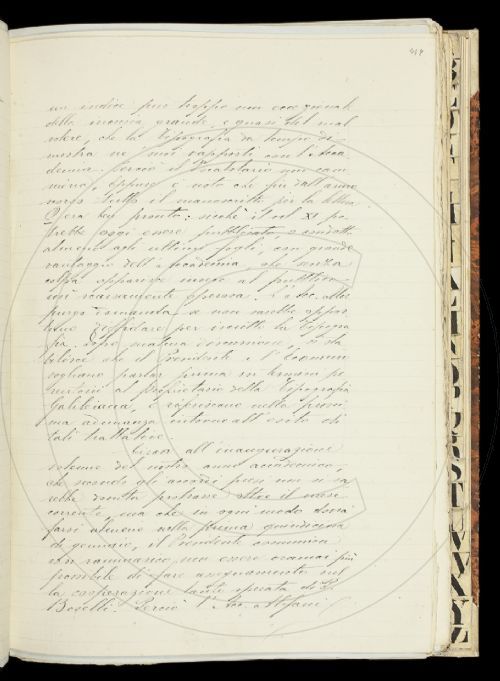 un indice pur troppo non eccezionale
della incuria grande, e quasi del mal
volere, che la Tipografia da tempo di-
mostra ne' suoi rapporti con l'Acca
demia. Perciò il Vocabolario non cam
mina; eppure è noto che più dall'anno
scorso tutto il manoscritto per la lettera
era bell'e pronto: sicché il vol. XI po
trebbe oggi essere pubblicato, o condotto
almeno agli ultimi fogli, con grande
vantaggio dell'Accademia, che senza
colpa apparisce invece al pubblico
operosa.
purgo domanda se non sarebbe oppor
tuno diffidare per iscritto la Tipogra
fia. Dopo matura discussione, si sta
bilisce che il Presidente e l'
vogliano parlar prima in termini pe
rentori al proprietario della Tipografia
Galileiana, e riferiscano nella prossi
ma adunanza intorno all'esito di
tali trattative.
Circa all'inaugurazione
solenne del nostro anno accademico,
che secondo gli accordi presi non si sa
rebbe dovuta protrarre oltre il mese
corrente, ma che in ogni modo dovrà
farsi almeno nella prima quindicina
di gennaio, il Presidente comunica
con rammarico non essere oramai più
possibile di fare assegnamento sul
la cooperazione tanto sperata di P.
Boselli. Perciò l'Acc. Stefani